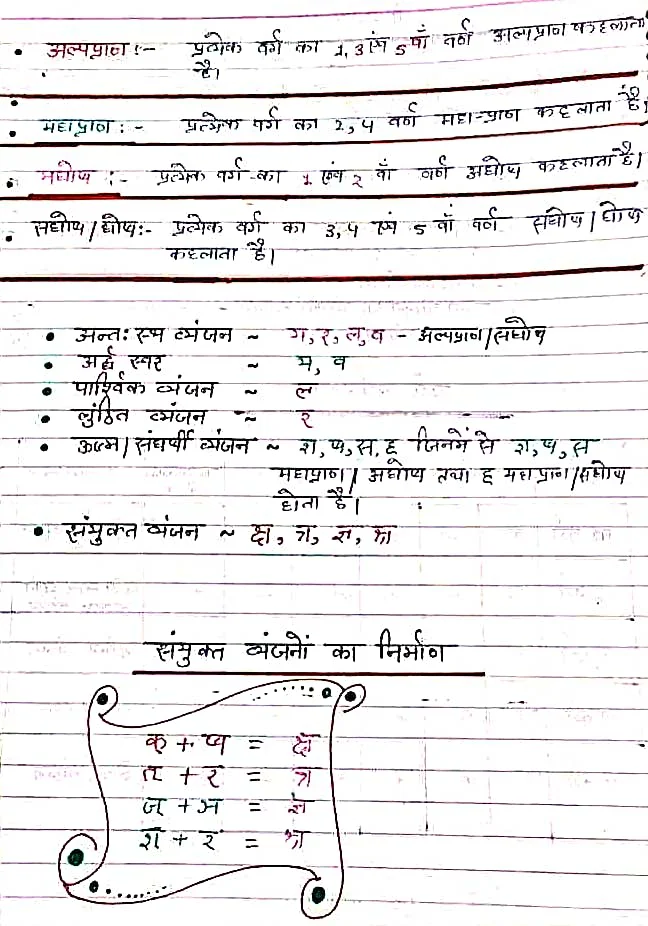 • अल्पप्राण :- प्रत्येक वर्ग का 1, 3 एंव 5 वाँ वर्ण अल्पप्राण कहलाता
है।
• महाप्राण : - प्रत्येक वर्ग का 2, 4 वर्ण महा-प्राण कहलाता है।
• अघोष :- प्रत्येक वर्ग का 1 एंव 2 वाँ वर्ण अघोष कहलाता है।
• सघोष/घोष:- प्रत्येक वर्ग का 3, 4 एंव 5 वाँ वर्ण सघोष / घोष
कहलाता है।
• अन्तः स्थ व्यंजन ~ य, र, ल, व - अल्पप्राण/सघोष
• अर्द्ध स्वर ~ य, व
• पार्श्विक व्यंजन ~ ल
• लुंठित व्यंजन ~ र
• ऊष्म / संघर्षी व्यंजन ~ श, ष, स, ह जिनमें से श, ष, स
महाप्राण / अघोष तथा ह महाप्राण/सघोष
होता है।
• संयुक्त व्यंजन ~ क्ष, त्र, ज्ञ, श्र
संयुक्त व्यंजनों का निर्माण
क् + ष = क्ष
त् + र = त्र
ज् + ञ = ज्ञ
श् + र = श्र